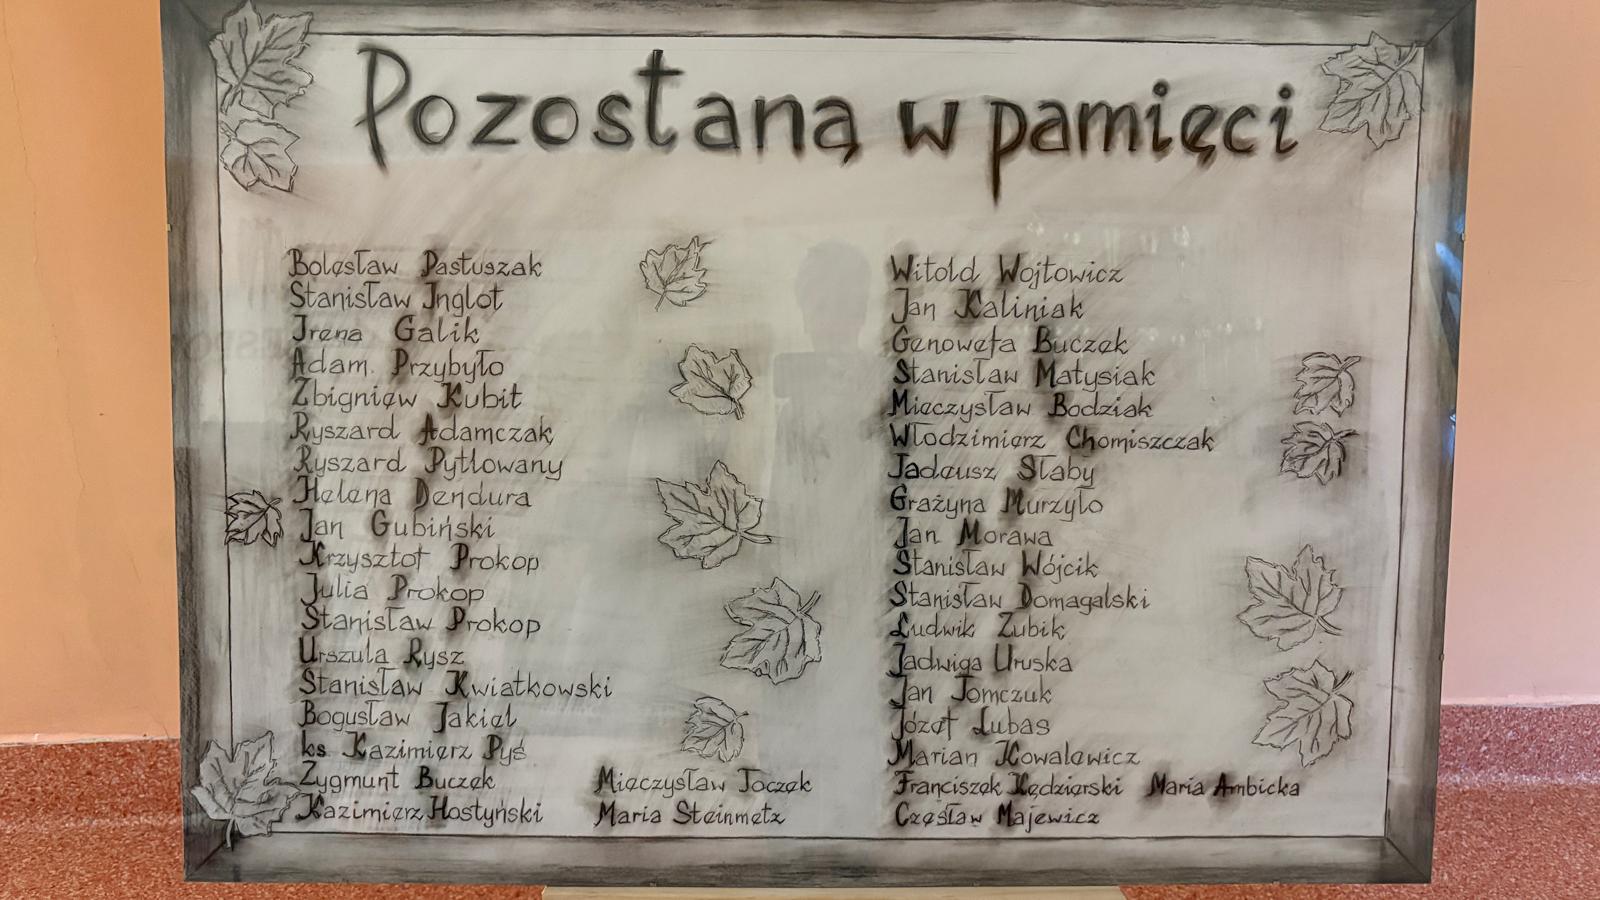 Pozostaną w pamięci
Bolesław Pastuszak
Stanisław Inglot
Irena Galik
Adam Przybyło
Zbigniew Kubit
Ryszard Adamczak
Ryszard Pytlowany
Helena Dendura
Jan Gubiński
Krzysztof Prokop
Julia Prokop
Stanisław Prokop
Urszula Rysz
Stanisław Kwiatkowski
Bogusław Jakiel
ks Kazimierz Pyś
Zygmunt Buczek
Kazimierz Hostyński
Mieczysław Toczek
Maria Steinmetz
Witold Wojtowicz
Jan Kaliniak
Genowefa Buczek
Stanisław Matysiak
Mieczysław Bodziak
Włodzimierz Chomiszczak
Tadeusz Słaby
Grażyna Murzyło
Jan Morawa
Stanisław Wójcik
Stanisław Domagalski
Ludwik Zubik
Jadwiga Uruska
Jan Tomczuk
Józef Lubas
Marian Kowalewicz
Franciszek Kędzierski Maria Ambicka
Czesław Majewicz